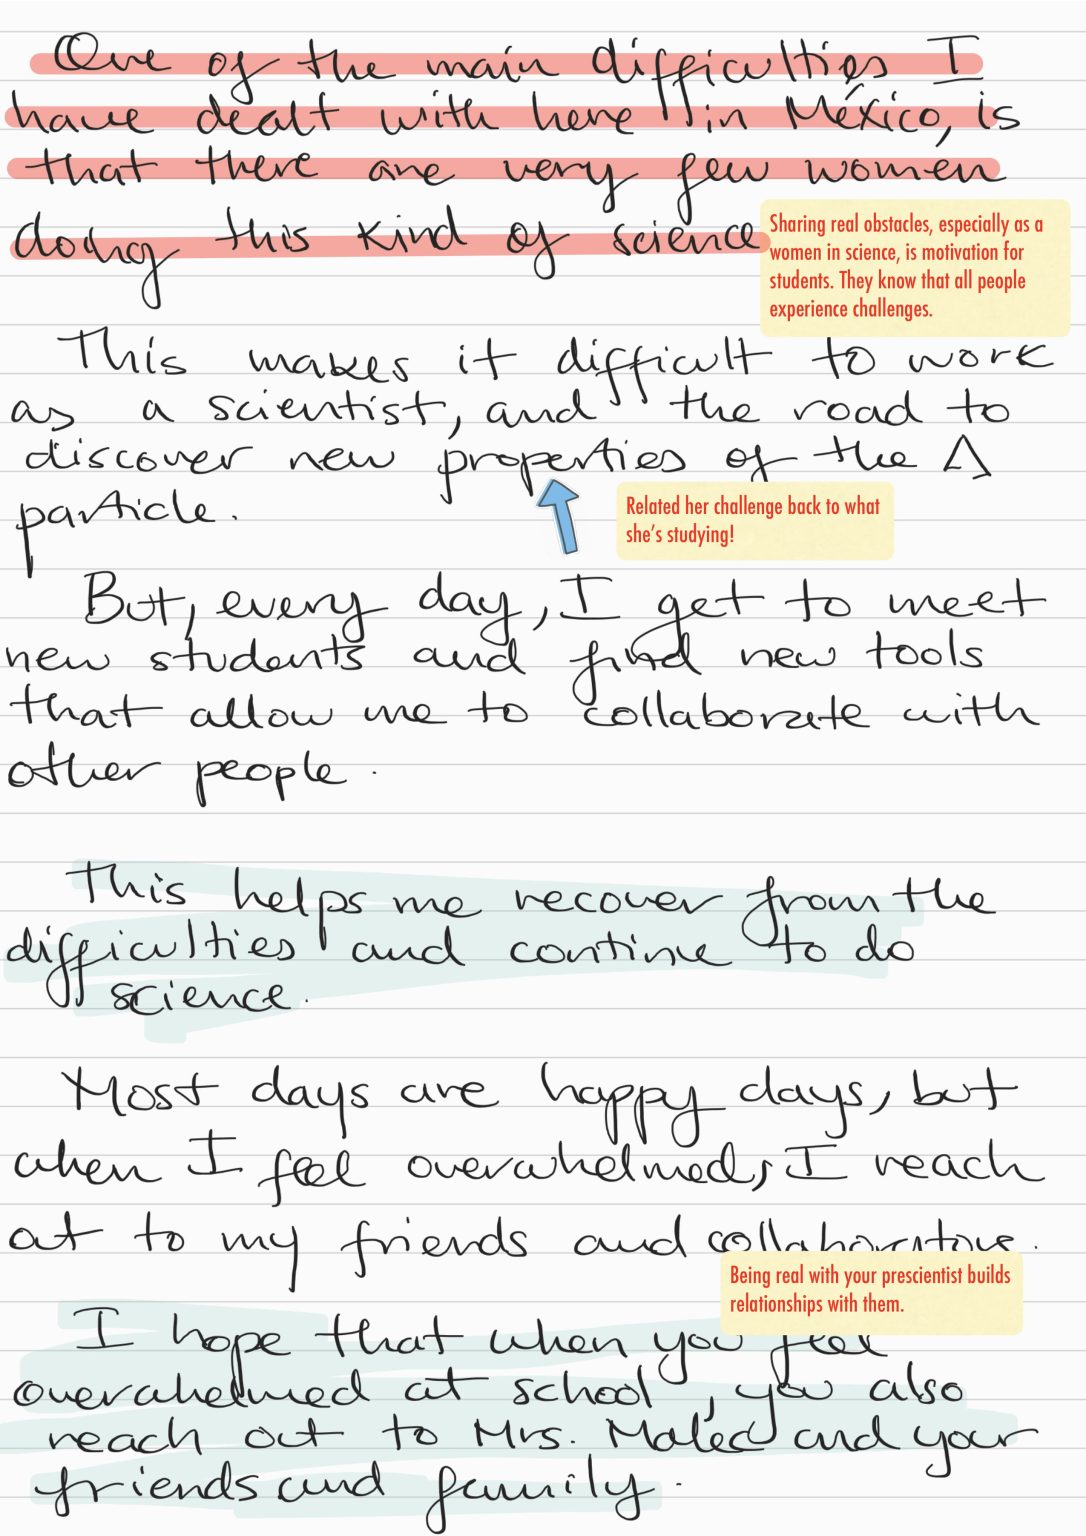 One of the main difficulties I
have dealt with here in México, is
that there are very few women
doing this kind of science
Sharing real obstacles, especially as a
women in science, is motivation for
students. They know that all people
experience challenges.
This makes it difficult to work
as a scientist, and the road to
discover new properties of the Λ
particle.
Related her challenge back to what
she's studying!
But, every day, I get to meet
new students and find new tools
that allow me to collaborate with
other people.
This helps me recover from the
difficulties and continue to do
science.
Most days are happy days, but
when I feel overwhelmed, I reach
out to my friends and collaborators.
Being real with your prescientist builds
relationships with them.
I hope that when you feel
overwhelmed at school, you also
reach out to Mrs. Malec and your
friends and family.